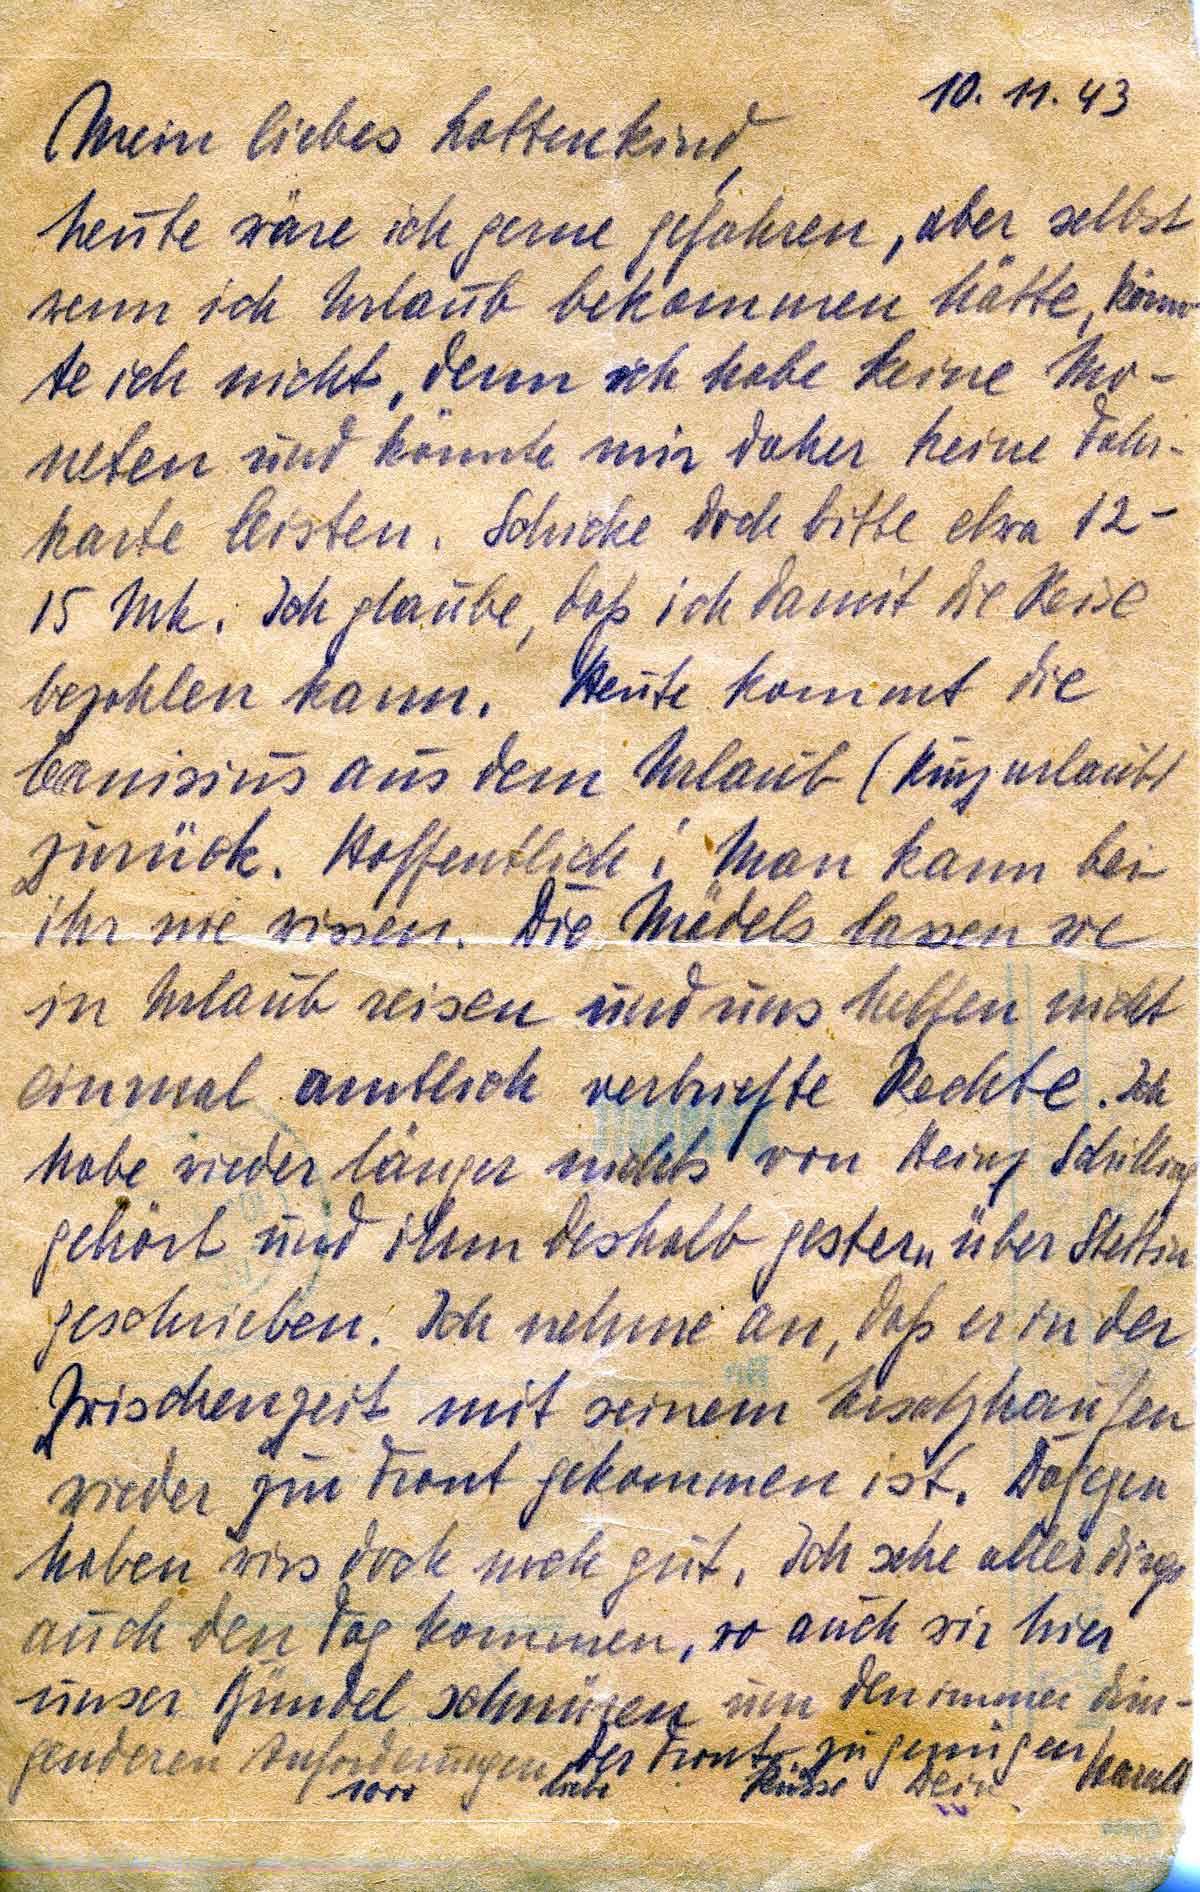 10. 11. 43
Mein liebes Lottenkind,
heute wäre ich gerne gefahren, aber selbst
wenn ich Urlaub bekommen hätte, könn-
te ich nicht, denn ich habe keine Mo-
neten und könnte mir daher keine Fahr-
karte leisten. Schicke doch bitte etwa 12-
15 Mk. Ich glaube, daß ich damit die Reise
bezahlen kann. Heute kommt die
Canisius aus dem Urlaub (Kurzurlaub)
zurück. Hoffentlich! Man kann bei
ihr nie wissen. Die Mädels lassen sie
in Urlaub reisen und uns helfen nicht
einmal amtlich verbriefte Rechte. Ich
habe wieder länger nichts von Heinz
gehört und ihm deshalb gestern über Stettin
geschrieben. Ich nehme an, daß er in der
Zwischenzeit mit seinem Ersatzhaufen
wieder zur Front gekommen ist. Dagegen
haben wirs doch noch gut. Ich sehe allerdings
auch den Tag kommen, wo auch wir hier
unser Bündel schnüren um den immer drin-
genderen Anforderungen der Front zu genügen
1000 liebe Küsse Dein Harald